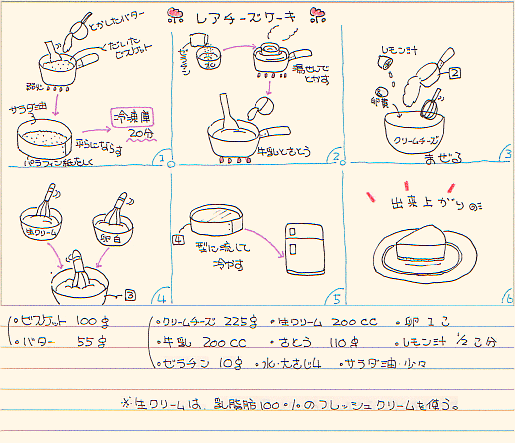 レアチーズケーキ
とかしたバター
くだいたビスケット
弱火
サラダ油
冷凍庫
20分
平らにならす
パラフィン紙をしく
1
ゼラチン
水
湯せんでとかす
牛乳とさとう
2
レモン汁
2
卵黄
クリームチーズ
まぜる
3
生クリーム
卵白
3
4
4
型に流して
冷やす
5
出来上がり
6
・ビスケット 100g
・バター 55g
・クリームチーズ 225g ・生クリーム 200cc ・卵 1こ
・牛乳 200cc ・さとう 110g ・レモン汁 1/2こ分
・ゼラチン 10g ・水・大さじ4 ・サラダ油・少々
※生クリームは、乳脂肪100%のフレッシュクリームを使う。